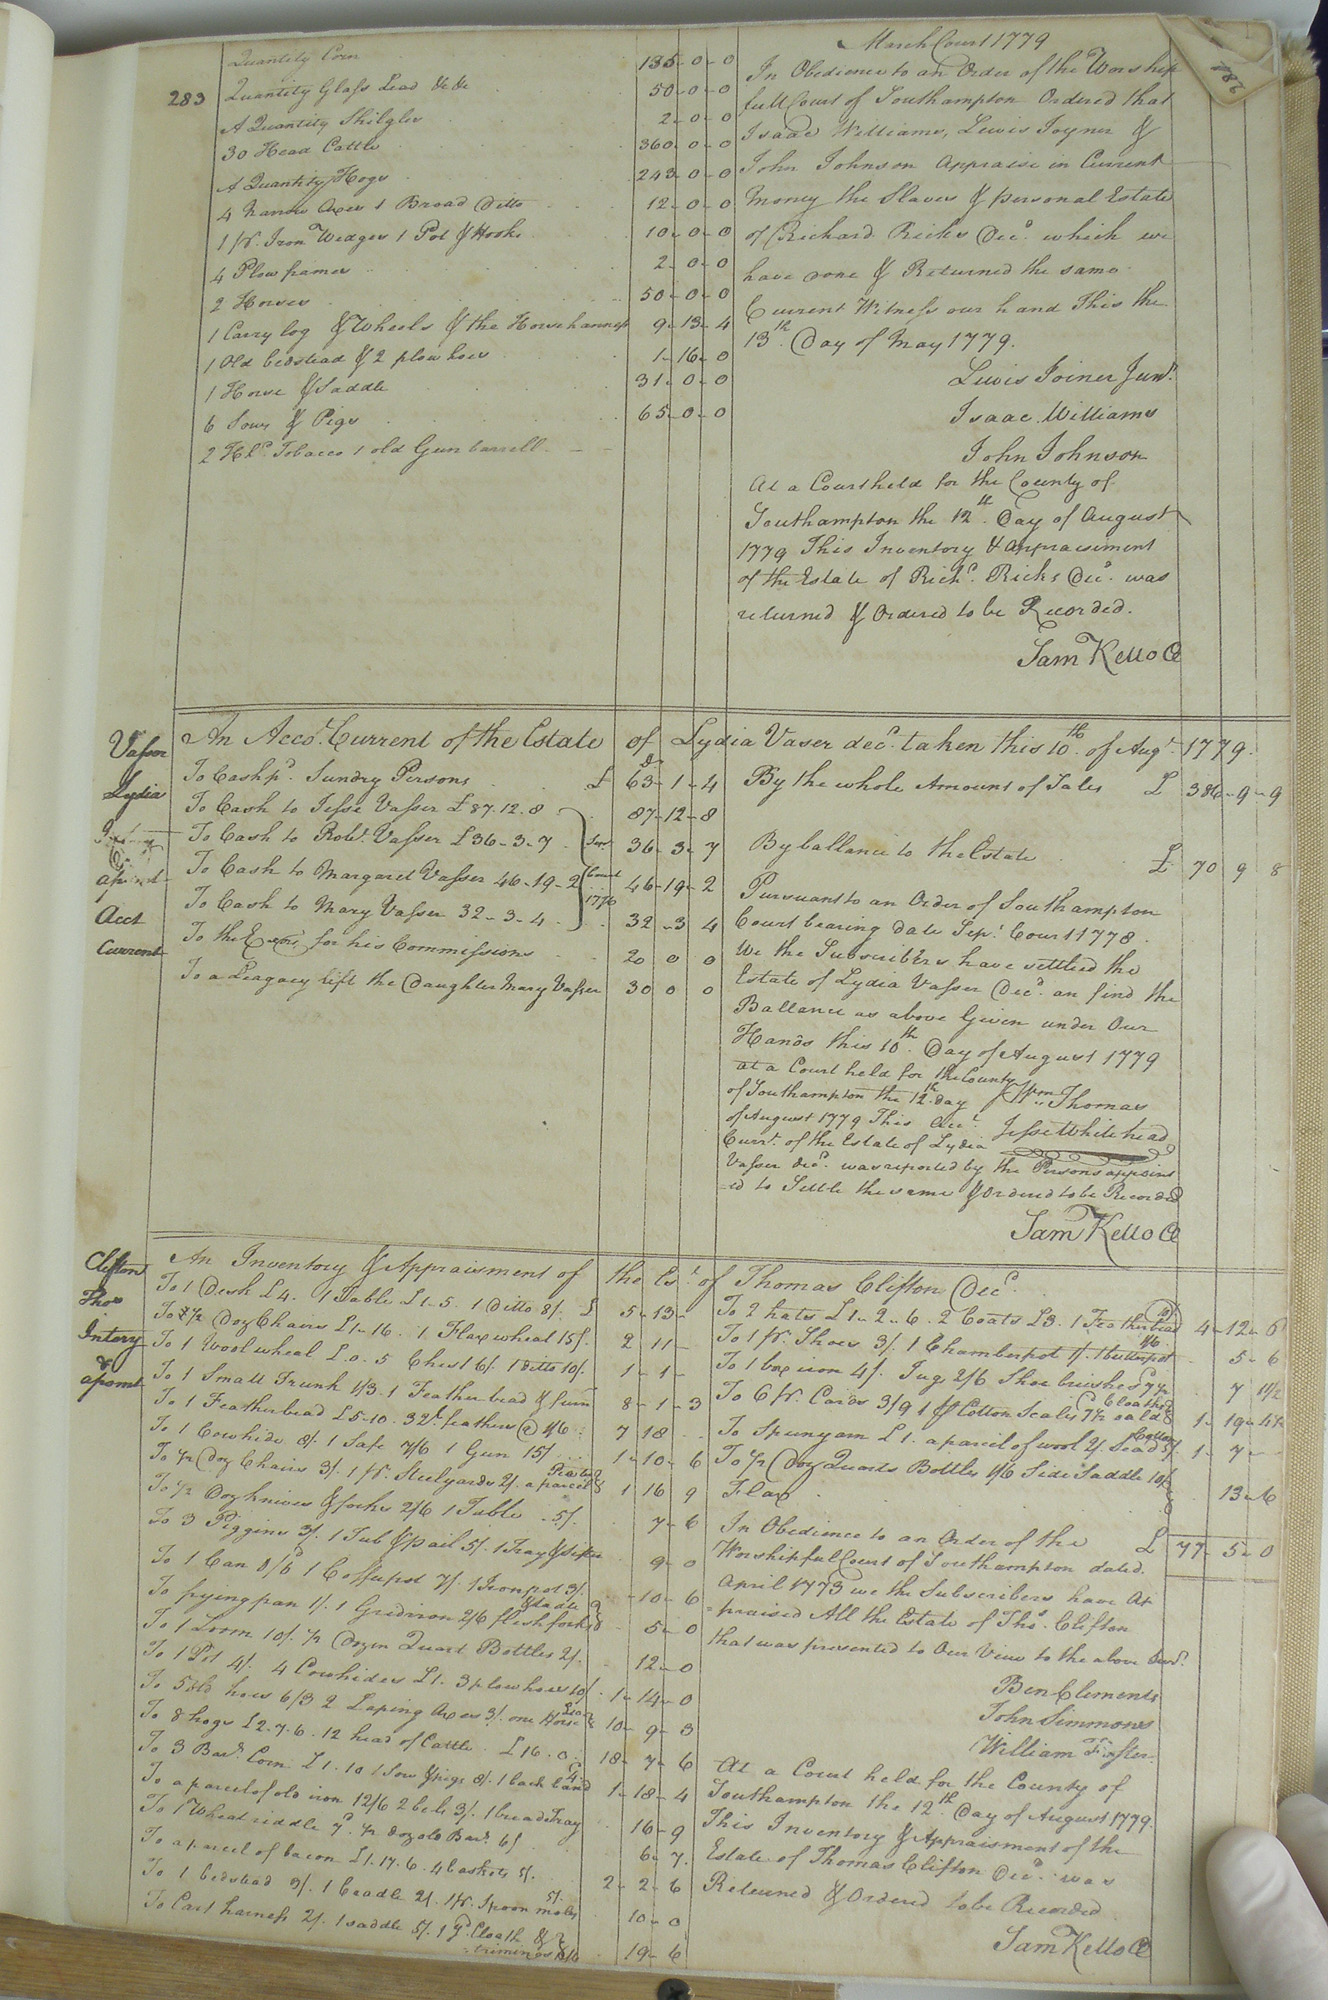 283
Quantity Corn 135-0-0
Quantity Glass Lead &c &c 50-0-0
A Quantity Shilgles 2-0-0
30 Head Cattle 360-0-0
A Quantity Hogs 243-0-0
4 Narrow Axes 1 Broad Ditto 12-0-0
1 pr. Iron Wedges 1 Pot & Hooks 10-0-0
4 Plow frames 2-0-0
2 Horses 50-0-0
1 Carry log & Wheels & the Horse harness 9-13-4
1 Old bedstead & 2 plow hoes 1-16-0
1 Horse & Saddle 31-0-0
6 Sows & Pigs 65-0-0
2 Hhd. Tobacco 1 old Gun barrell
March Court 1779
In Obedience to an Order of the Worship
full Court of Southampton Ordered that
Isaac Williams, Lewis Joyner &
John Johnson Appraise in Current
Money the Slaves & personal Estate
of Richard Ricks Decd. which we
have done & Returned the same
Current Witness our hand This the
13th. Day of May 1779.
Lewis Joiner Junr.
Isaac Williams
John Johnson
At a Court held for the County of
Southampton the 12th. Day of August
1779 This Inventory & Appraisement
of the Estate of Richd. Ricks Decd. was
returned & Ordered to be Recorded.
Sam Kello C
Vasser
Lydia
Acct
Current
An Accot. Current of the Estate of Lydia Vaser decd. taken this 10th. of Augt. 1779.
Dr
To Cash pd. Sundry Persons £ 63-1-4
To Cash to Jesse Vasser £87.12.8 87-12-8
To Cash to Robt. Vasser £36-3-7 36-3-7
To Cash to Margaret Vasser 46-19-2 46-19-2
Court
1776
To Cash to Mary Vasser 32-3-4 32-3 4
To the for his Commissions 20 0 0
To a Leagacy left the Daughter Mary Vasser 30 0 0
By the whole Amount of Sales £ 386-9-9
By ballance to the Estate £ 70 9 8
Pursuant to an Order of Southampton
Court bearing date Sept. Court 1778
We the Subscribers have settled the
Estate of Lydia Vasser Decd. an find the
Ballance as above Given under Our
Hands this 10th. Day of August 1779
Wm. Thomas
Jesse Whitehead
at a Court held for the County
of Southampton the 12th. day
of August 1779 This Acct.
Currt. of the Estate of Lydia
Vasser decd. was reported by the Persons appoint
-ed to Settle the same & Ordered to be Recorded
Sam Kello C
Clifton
Thos
Intery
&
apsmt
An Inventory & Appraisment of the Est. of Thomas Clifton Decd.
To 1 Desk £4. 1 Table £1-5. 1 Ditto 8/. £ 5-13-
To 1/2 Doz Chairs £1-16. 1 Flax wheel 15/. 2 11-
To 1 Wool wheel £.0.5 Chest 6/. 1 ditto 10/. 1-1-
To 1 Small Trunk 1/3. 1 Feather bead & furn 8-1-3
To 1 Featherbead £5-10. 32lb feathers @ 1/6 7 18
To 1 Cowhide 8/. 1 Safe 7/6 1 Gun 15/. 1-10-6
To 1/2 Doz Chairs 3/. 1 pr. Steelyards 2/. a parcel 1 16 9
To 1/2 Doz knives & forks 2/6 1 Table 5/. 7-6
To 3 Piggins 3/. 1 Tub & pail 5/. 1 Tray & sifter 9-0
To 1 Can 1 Coffepot 7/. 1 Iron pot 3/. 10-6
To frying pan 1/. 1 Gridiron 2/6 flesh forks 5-0
To 1 Loom 10/. 1/2 Dozen Quart Bottles 2/. 12-0
To 1 Pot 4/. 4 Cowhides £1. 3 plow hoes 10/. 1-14-0
To 5 old hoes 6/3 2 Laping Axes 3/. one Horse 10-9-3
To 8 hogs £2.7.6. 12 head of Cattle £16.0. 18-7-6
To 3 Barl. Corn £1.10 1 Sow & pigs 8/. 1 back band 1-18-4
To a parcel of old iron 12/6 2 bels 3/. 1 bread Tray 16-9
To 1 Wheat riddle 1/2 doz old Barl. 6/. 6-7.
To a parcel of bacon £1.17.6. 4 baskets 5/. 2-2-6
To 1 bedstead 3/. 1 Ceadle 2/. 1 pr. Spoon moles 5/. 10-0
To Cart harness 2/. 1 saddle 5/. Cloath & 19-6
To 2 hats £1-2-6. 2 Coats £3. 1 Feather bead 4-12-6
To 1 pr. Shoes 3/. 1 Chamberpot 1/. 1 butterpot 5-6
To 1 box iron 4/. Jug 2/6 Shoe brushes 7 11/2
To 6 pr. Cards 3/9 Cotton Scales 1-19-4 1/2
To Spunyarn £1. a parcel of wool 2/. 1-7-
To 1/2 Doz Quarts Bottles 1/6 Side Saddle 10/.
Flax 13-6
£ 77-5-0
In Obedience to an Order of the
Worshipfull Court of Southampton dated
April 1773 we the Subscribers have Ap
praised All the Estate of Thos. Clifton
that was presented to Our View to the above
Ben Clements
John Simmons
William Foster
At a Court held for the County of
Southampton the 12th. Day of August 1779.
This Inventory & Appraisment of the
Estate of Thomas Clifton Decd. was
Returned & Ordered to be Recorded
Sam Kello C